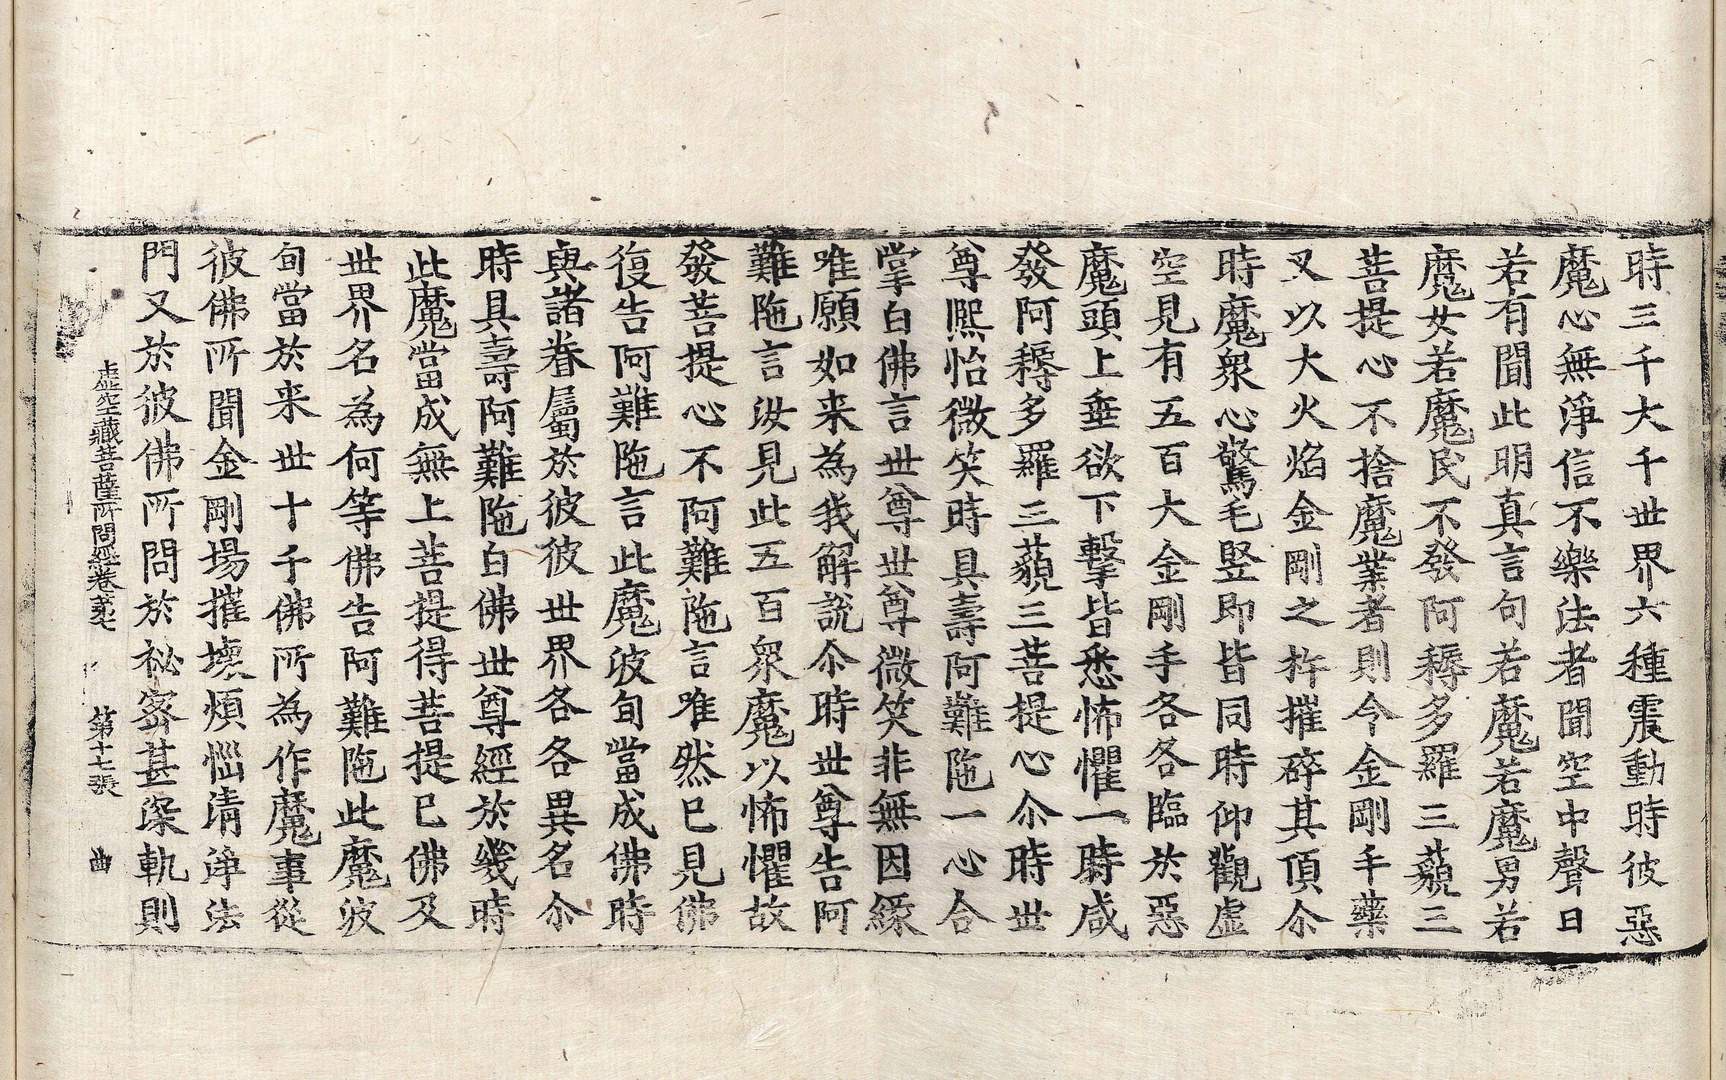 時三千大千世界六種震動時彼惡
魔心無淨信不樂法者聞空中聲曰
若有聞此明真言句若魔若魔男若
魔女若魔民不發阿耨多羅三藐三
菩提心不捨魔業者則今金剛手藥
叉以大火焰金剛之杵摧碎其頂尒
時魔衆心驚毛竪即皆同時仰觀虛
空見有五百大金剛手各各臨於惡
魔頭上垂欲下擊皆悉怖懼一時咸
發阿耨多羅三藐三菩提心尒時世
尊熈怡微笑時具壽阿難陁一心合
掌白佛言世尊世尊微笑非無因緣
唯願如来為我解說尒時世尊告阿
難陁言汝見此五百衆魔以怖懼故
發菩提心不阿難陁言唯然已見佛
復告阿難陁言此魔波旬當成佛時
與諸眷屬於彼彼世界各各異名尒
時具壽阿難陁白佛世尊經於幾時
此魔當成無上菩提得菩提已佛及
世界名為何等佛告阿難陁此魔波
旬當於来世十千佛所為作魔事從
彼佛所聞金剛場摧壞煩惱清淨法
門又於彼佛所問於祕密甚深軌則
虛空藏菩薩所問經卷第七 第十七張 曲